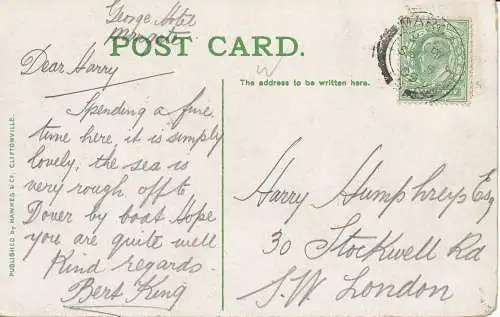 George Hotel
Margate
POST CARD.
Dear Harry
Spending a fine
time here, it is simply
lovely, the sea is
very rough. off to
Dover by boat Hope
you are quite well
Kind regards.
Bert King
The address to be written here.
MARGATE
Harry Humphreys Esq
30 Stockwell Rd
S.W. London
PUBLISHED by HAWKES & CO, CLIFTONVILLE.